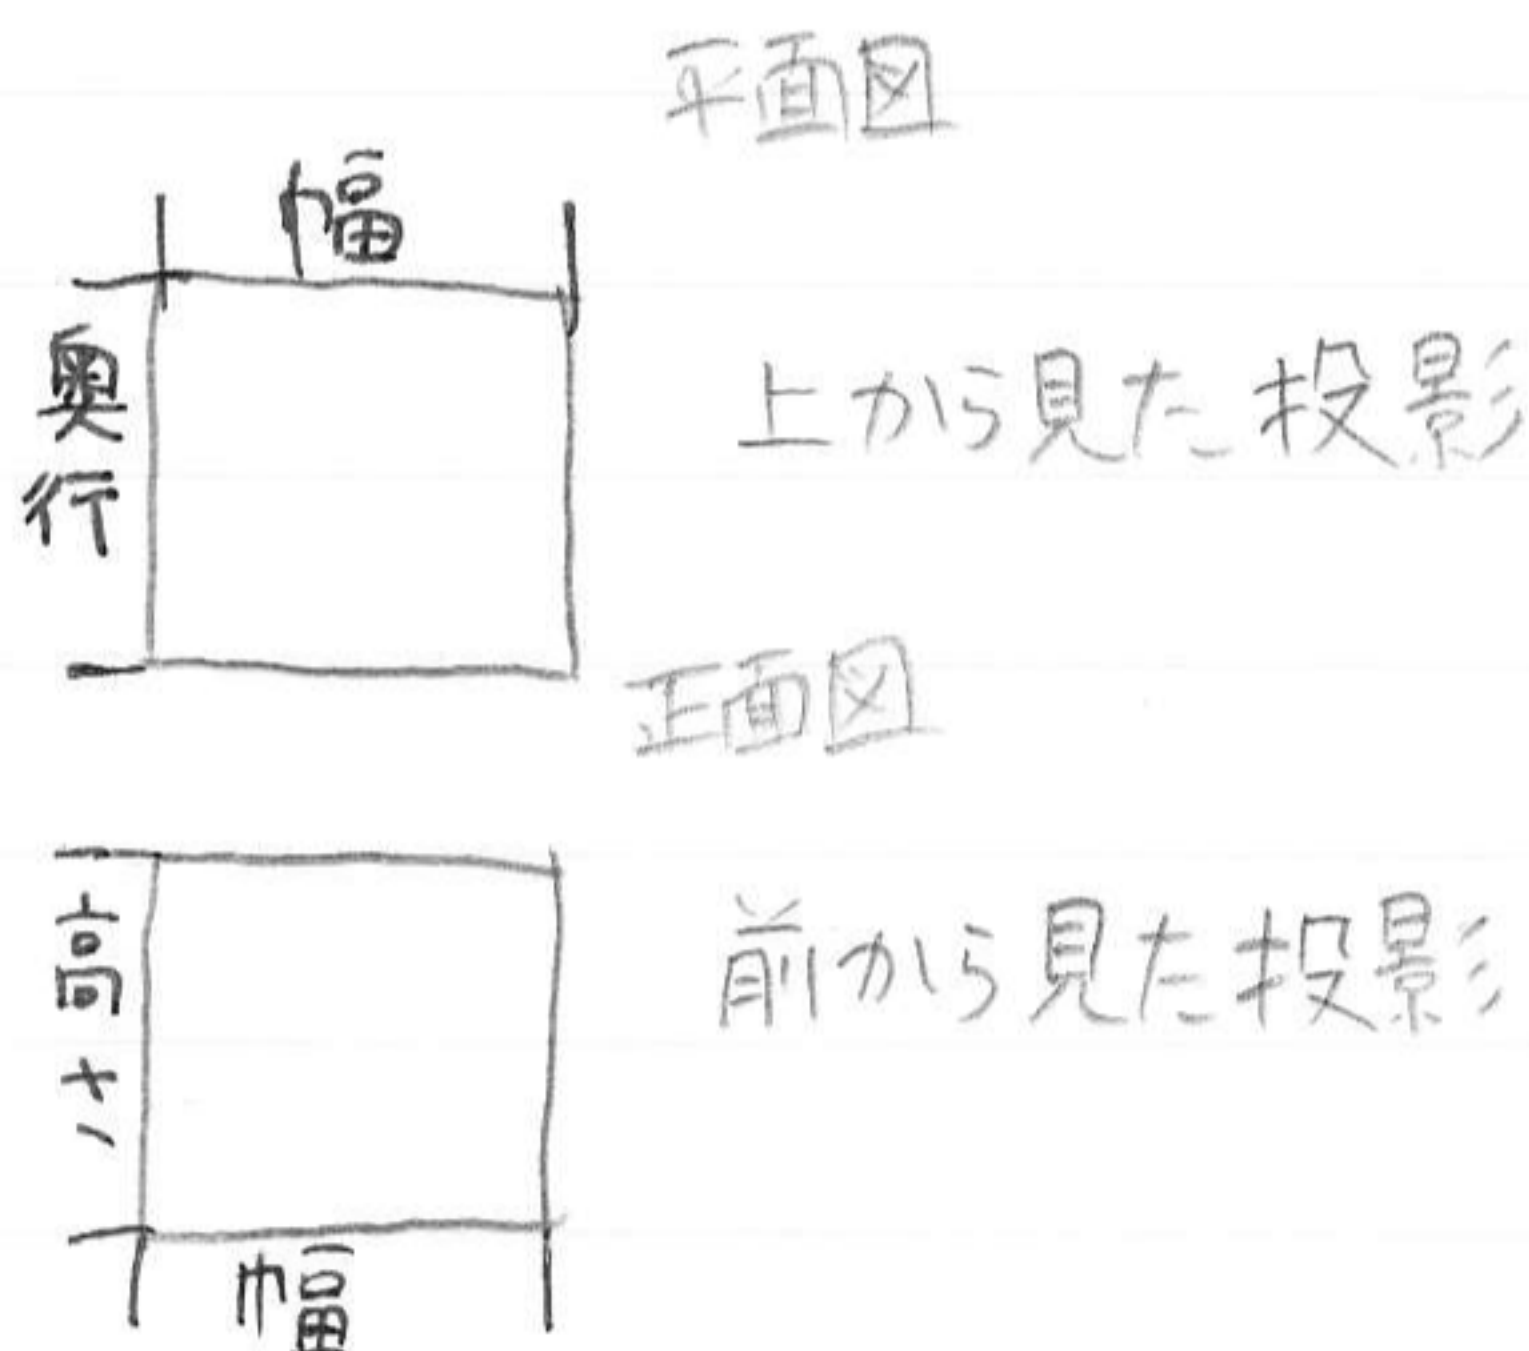 平面図
幅
奥行
上から見た投影
正面図
高さ
前から見た投影
幅